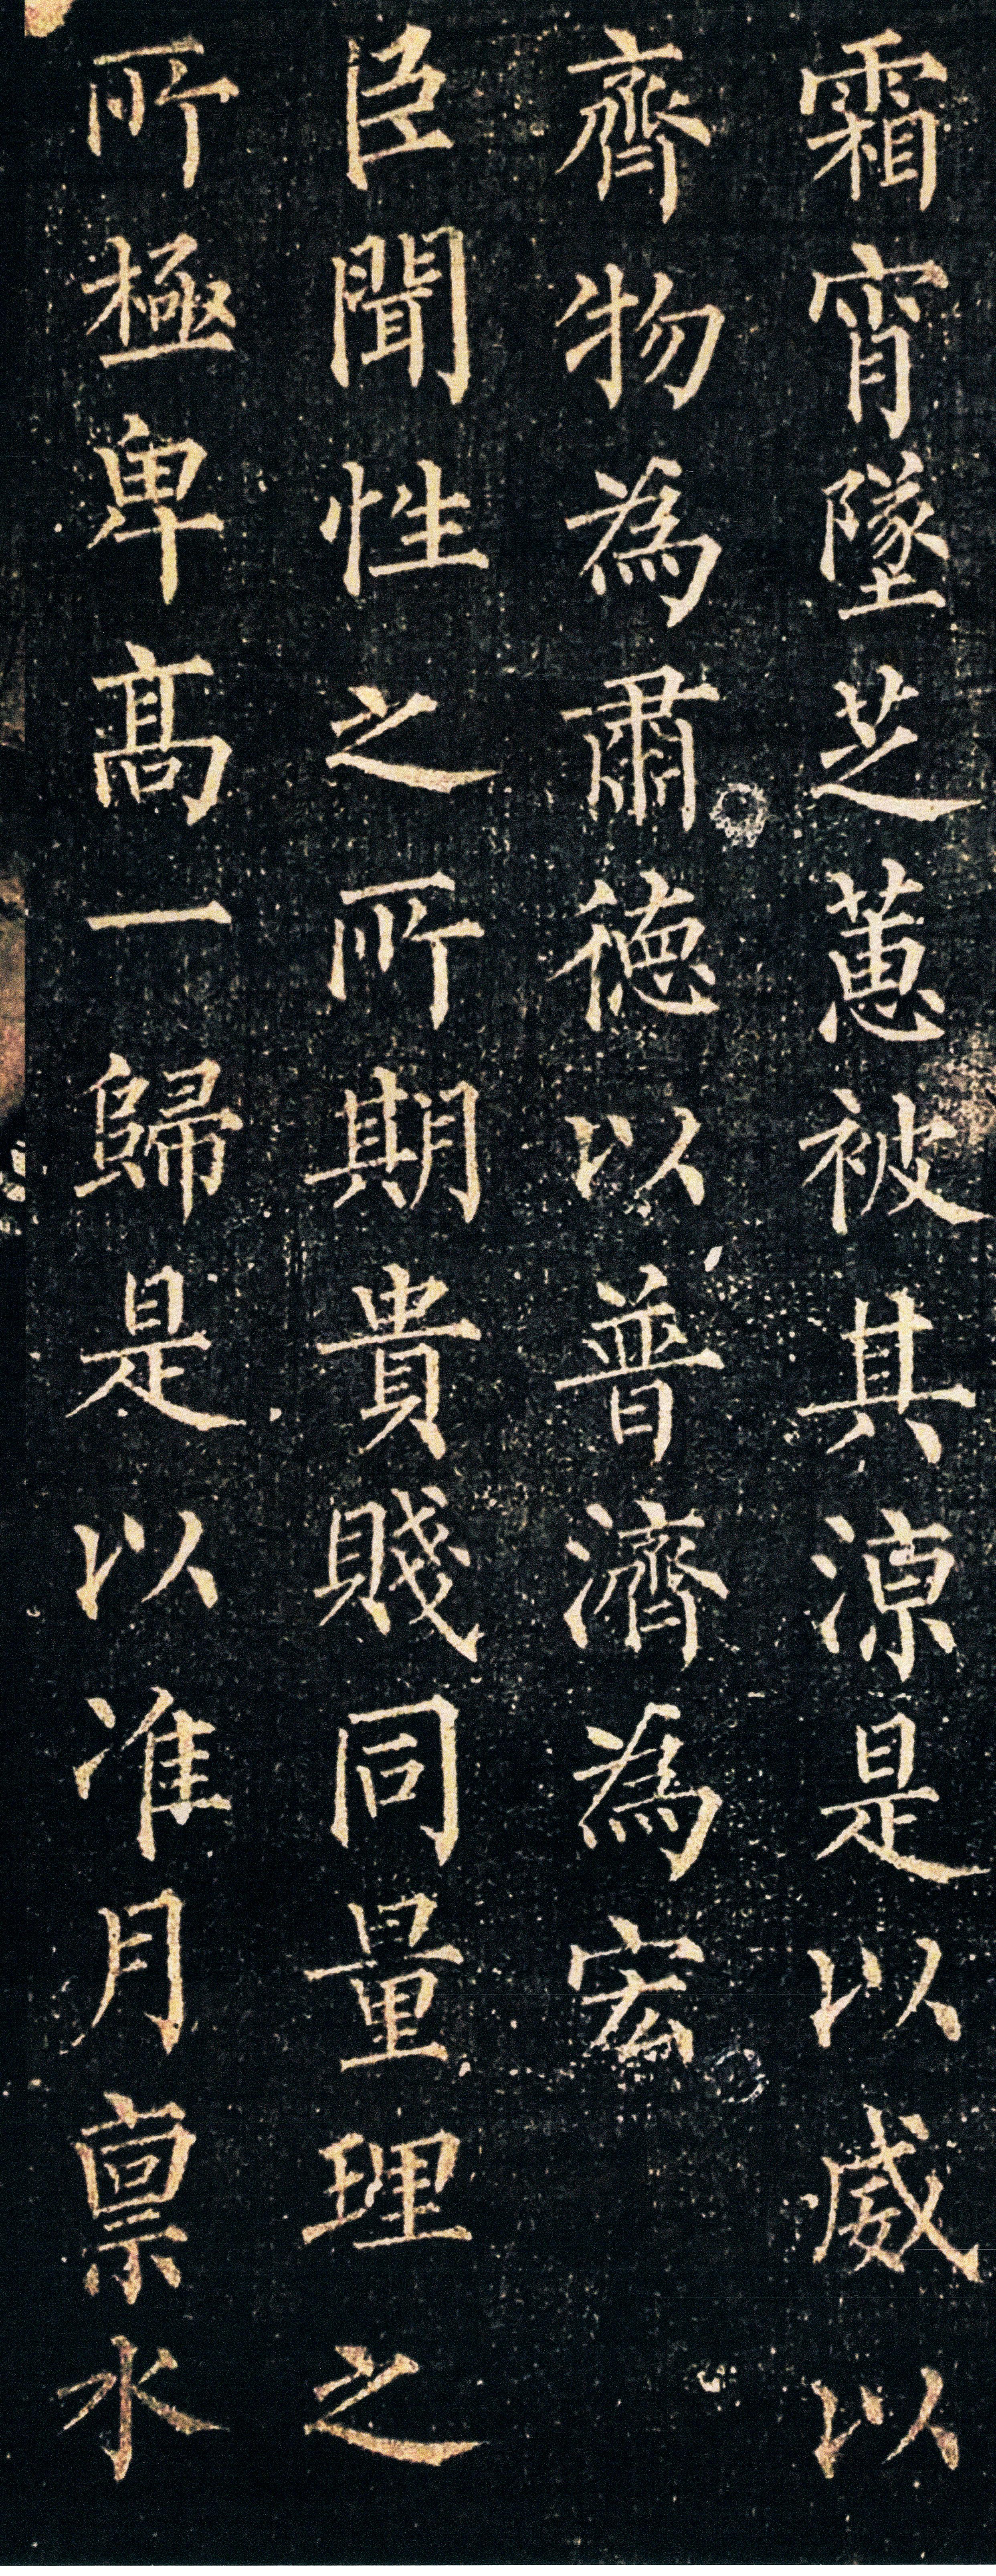 霜宵墜芝蕙被其凉是以威以
齊物為肅德以普濟為宏
臣聞性之所期貴賤同量理之
所極卑高一歸是以准月禀水